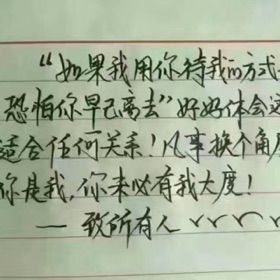 “如果我用你待我的方式
恐怕你早已离去”好好体会这
适合任何关系！凡事换个角度
你是我，你未必有我大度！
— 致所有人